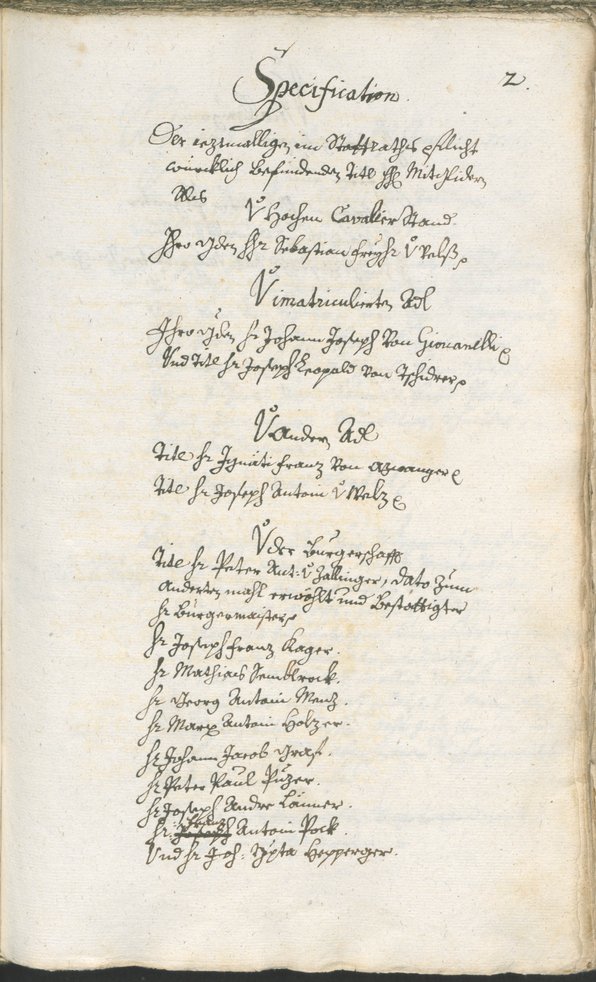 2.
Specification.
Der ieztmalligen im Stattrathspflicht
würcklich Befindenden Titl Mitglidern
Als
V Hochen Cavalier Stand.
Ihro Gden Hr Sebastian Freyhr V Welß
V imatriculierten Adl
Ihro Gden Hr Johann Joseph Von Giovanelli
Und Titl Hr Joseph Leopold Von Tschiderer
V Andern Adl
Titl Hr Ignati Franz Von Azwanger
Titl Hr Joseph Antoni V Welz
V der Burgerschafft
Titl Hr Peter Ant: V Zallinger, dato zum
Anderten mahl erwöhlt und Bestättigter
Hr Burgermaister
Hr Joseph Franz Kager.
Hr Mathias Semblrock.
Hr Georg Antoni Menz.
Hr Marx Antoni Holzer.
Hr Johann Jacob Graf.
Hr Peter Paul Püzer.
Hr Joseph Andre Länner.
Franz
Hr: Joseph Antoni Pock.
Und Hr Joh: Bpta Hepperger.